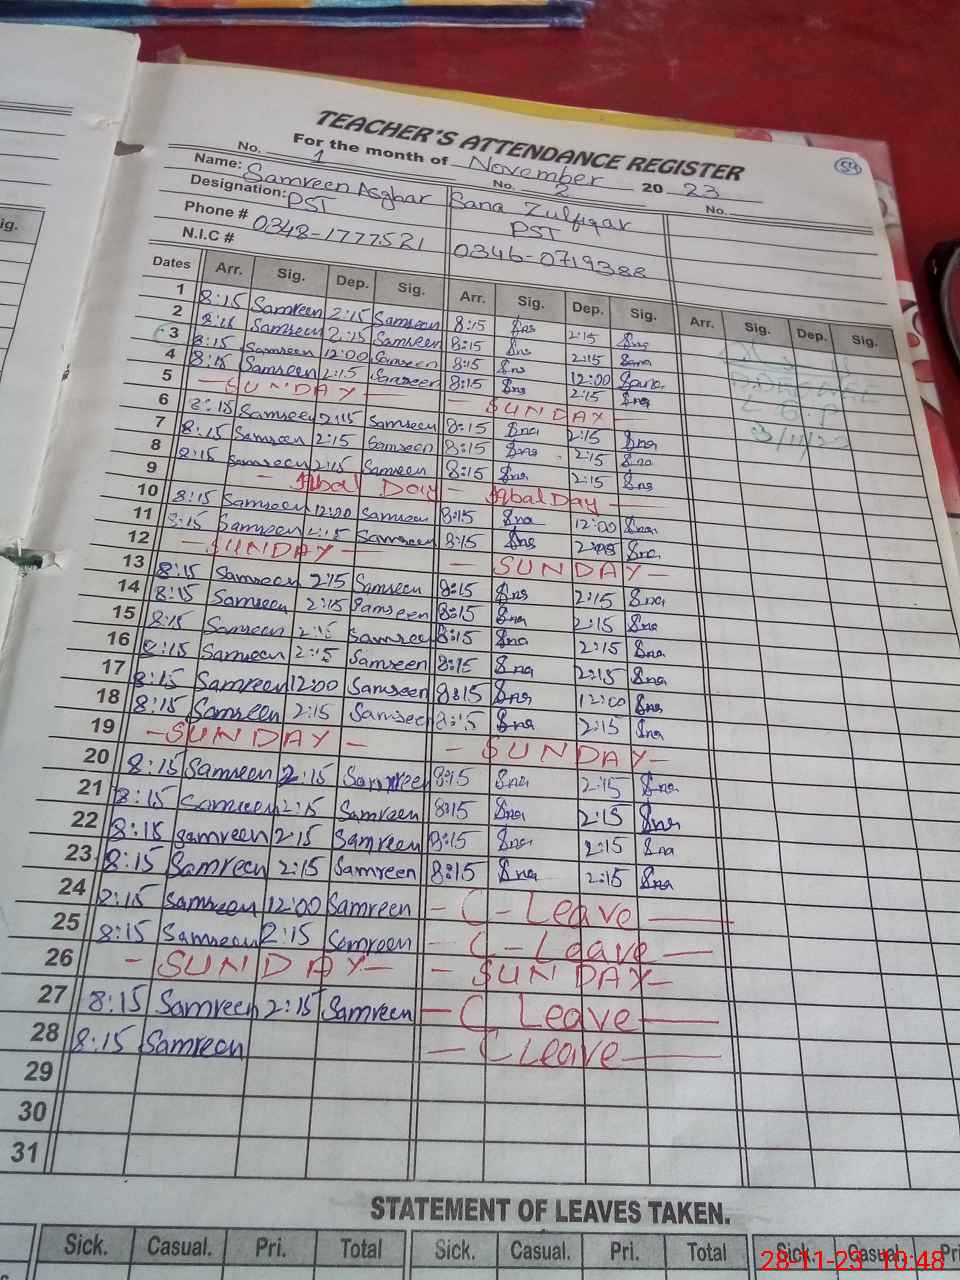 TEACHER'S ATTENDANCE REGISTER
59
For the month of November 20 23
No. 1 No. 2 No.
Name: Samreen Asghar Sana Zulfiqar
Designation: PST PST
Phone # 0348-1777521 0346-0719388
N.I.C #
Dates Arr. Sig. Dep. Sig. Arr. Sig. Dep. Sig. Arr. Sig. Dep. Sig.
1 8:15 Samreen 2:15 Samreen 8:15 Sna 2:15 Sna
2 8:15 Samreen 2:15 Samreen 8:15 Sna 2:15 Sana
3 8:15 Samreen 12:00 Samreen 8:15 Sna 12:00 Sana
4 8:15 Samreen 2:15 Samreen 8:15 Sna 2:15 Sna
5 - SUNDAY - - SUNDAY -
6 8:15 Samreen 2:15 Samreen 8:15 Sna 2:15 Sna
7 8:15 Samreen 2:15 Samreen 8:15 Sna 2:15 Sna
8 8:15 Samreen 2:15 Samreen 8:15 Sna 2:15 Sna
9 - Iqbal Day - Iqbal Day -
10 8:15 Samreen 12:00 Samreen 8:15 Sna 12:00 Sna
11 8:15 Samreen 2:15 Samreen 8:15 Sna 2:15 Sna
12 - SUNDAY - - SUNDAY -
13 8:15 Samreen 2:15 Samreen 8:15 Sna 2:15 Sna
14 8:15 Samreen 2:15 Samreen 8:15 Sna 2:15 Sna
15 8:15 Samreen 2:15 Samreen 8:15 Sna 2:15 Sna
16 8:15 Samreen 2:15 Samreen 8:15 Sna 2:15 Sna
17 8:15 Samreen 12:00 Samreen 8:15 Sna 12:00 Sna
18 8:15 Samreen 2:15 Samreen 8:15 Sna 2:15 Sna
19 - SUNDAY - - SUNDAY -
20 8:15 Samreen 2:15 Samreen 8:15 Sna 2:15 Sna
21 8:15 Samreen 2:15 Samreen 8:15 Sna 2:15 Sna
22 8:15 Samreen 2:15 Samreen 8:15 Sna 2:15 Sna
23 8:15 Samreen 2:15 Samreen 8:15 Sna 2:15 Sna
24 8:15 Samreen 12:00 Samreen - C - Leave -
25 8:15 Samreen 2:15 Samreen - C - Leave -
26 - SUNDAY - - SUNDAY -
27 8:15 Samreen 2:15 Samreen - C Leave -
28 8:15 Samreen - C Leave -
29
30
31
STATEMENT OF LEAVES TAKEN.
Sick. Casual. Pri. Total Sick. Casual. Pri. Total Sick. Casual. Pri
28-11-23 10:48